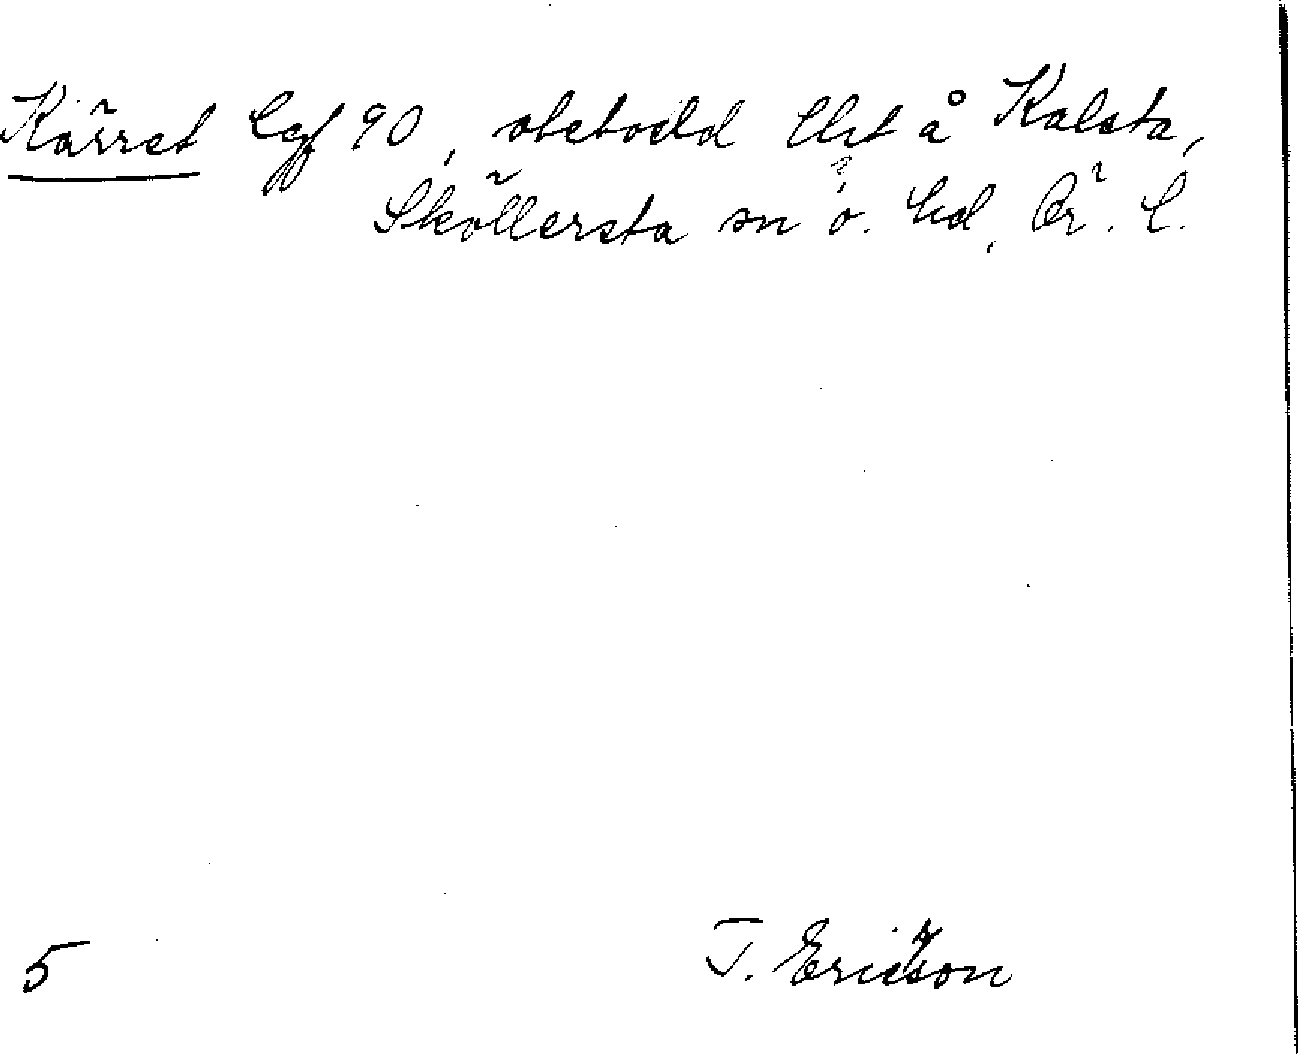 Kärret Lgf 90, obebodd lht å Kalsta,
Sköllersta sn o. hd, Ör. l.
5
T. Ericson